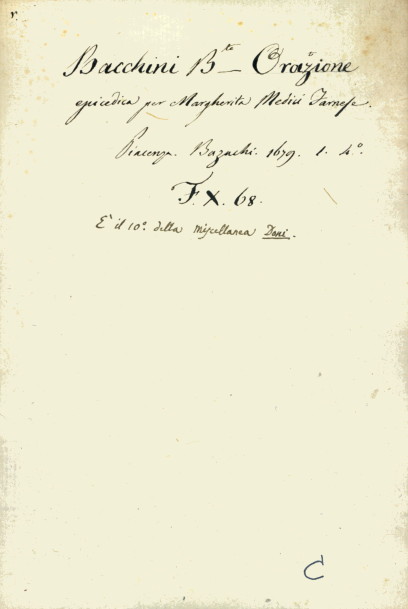 Bacchini B.to — Orazione
epicedica per Margherita Medici Farnese.
Piacenza. Bazachi. 1679. 1. 4.º
F. X. 68.
E' il 10.º della miscellanea Doni.
C